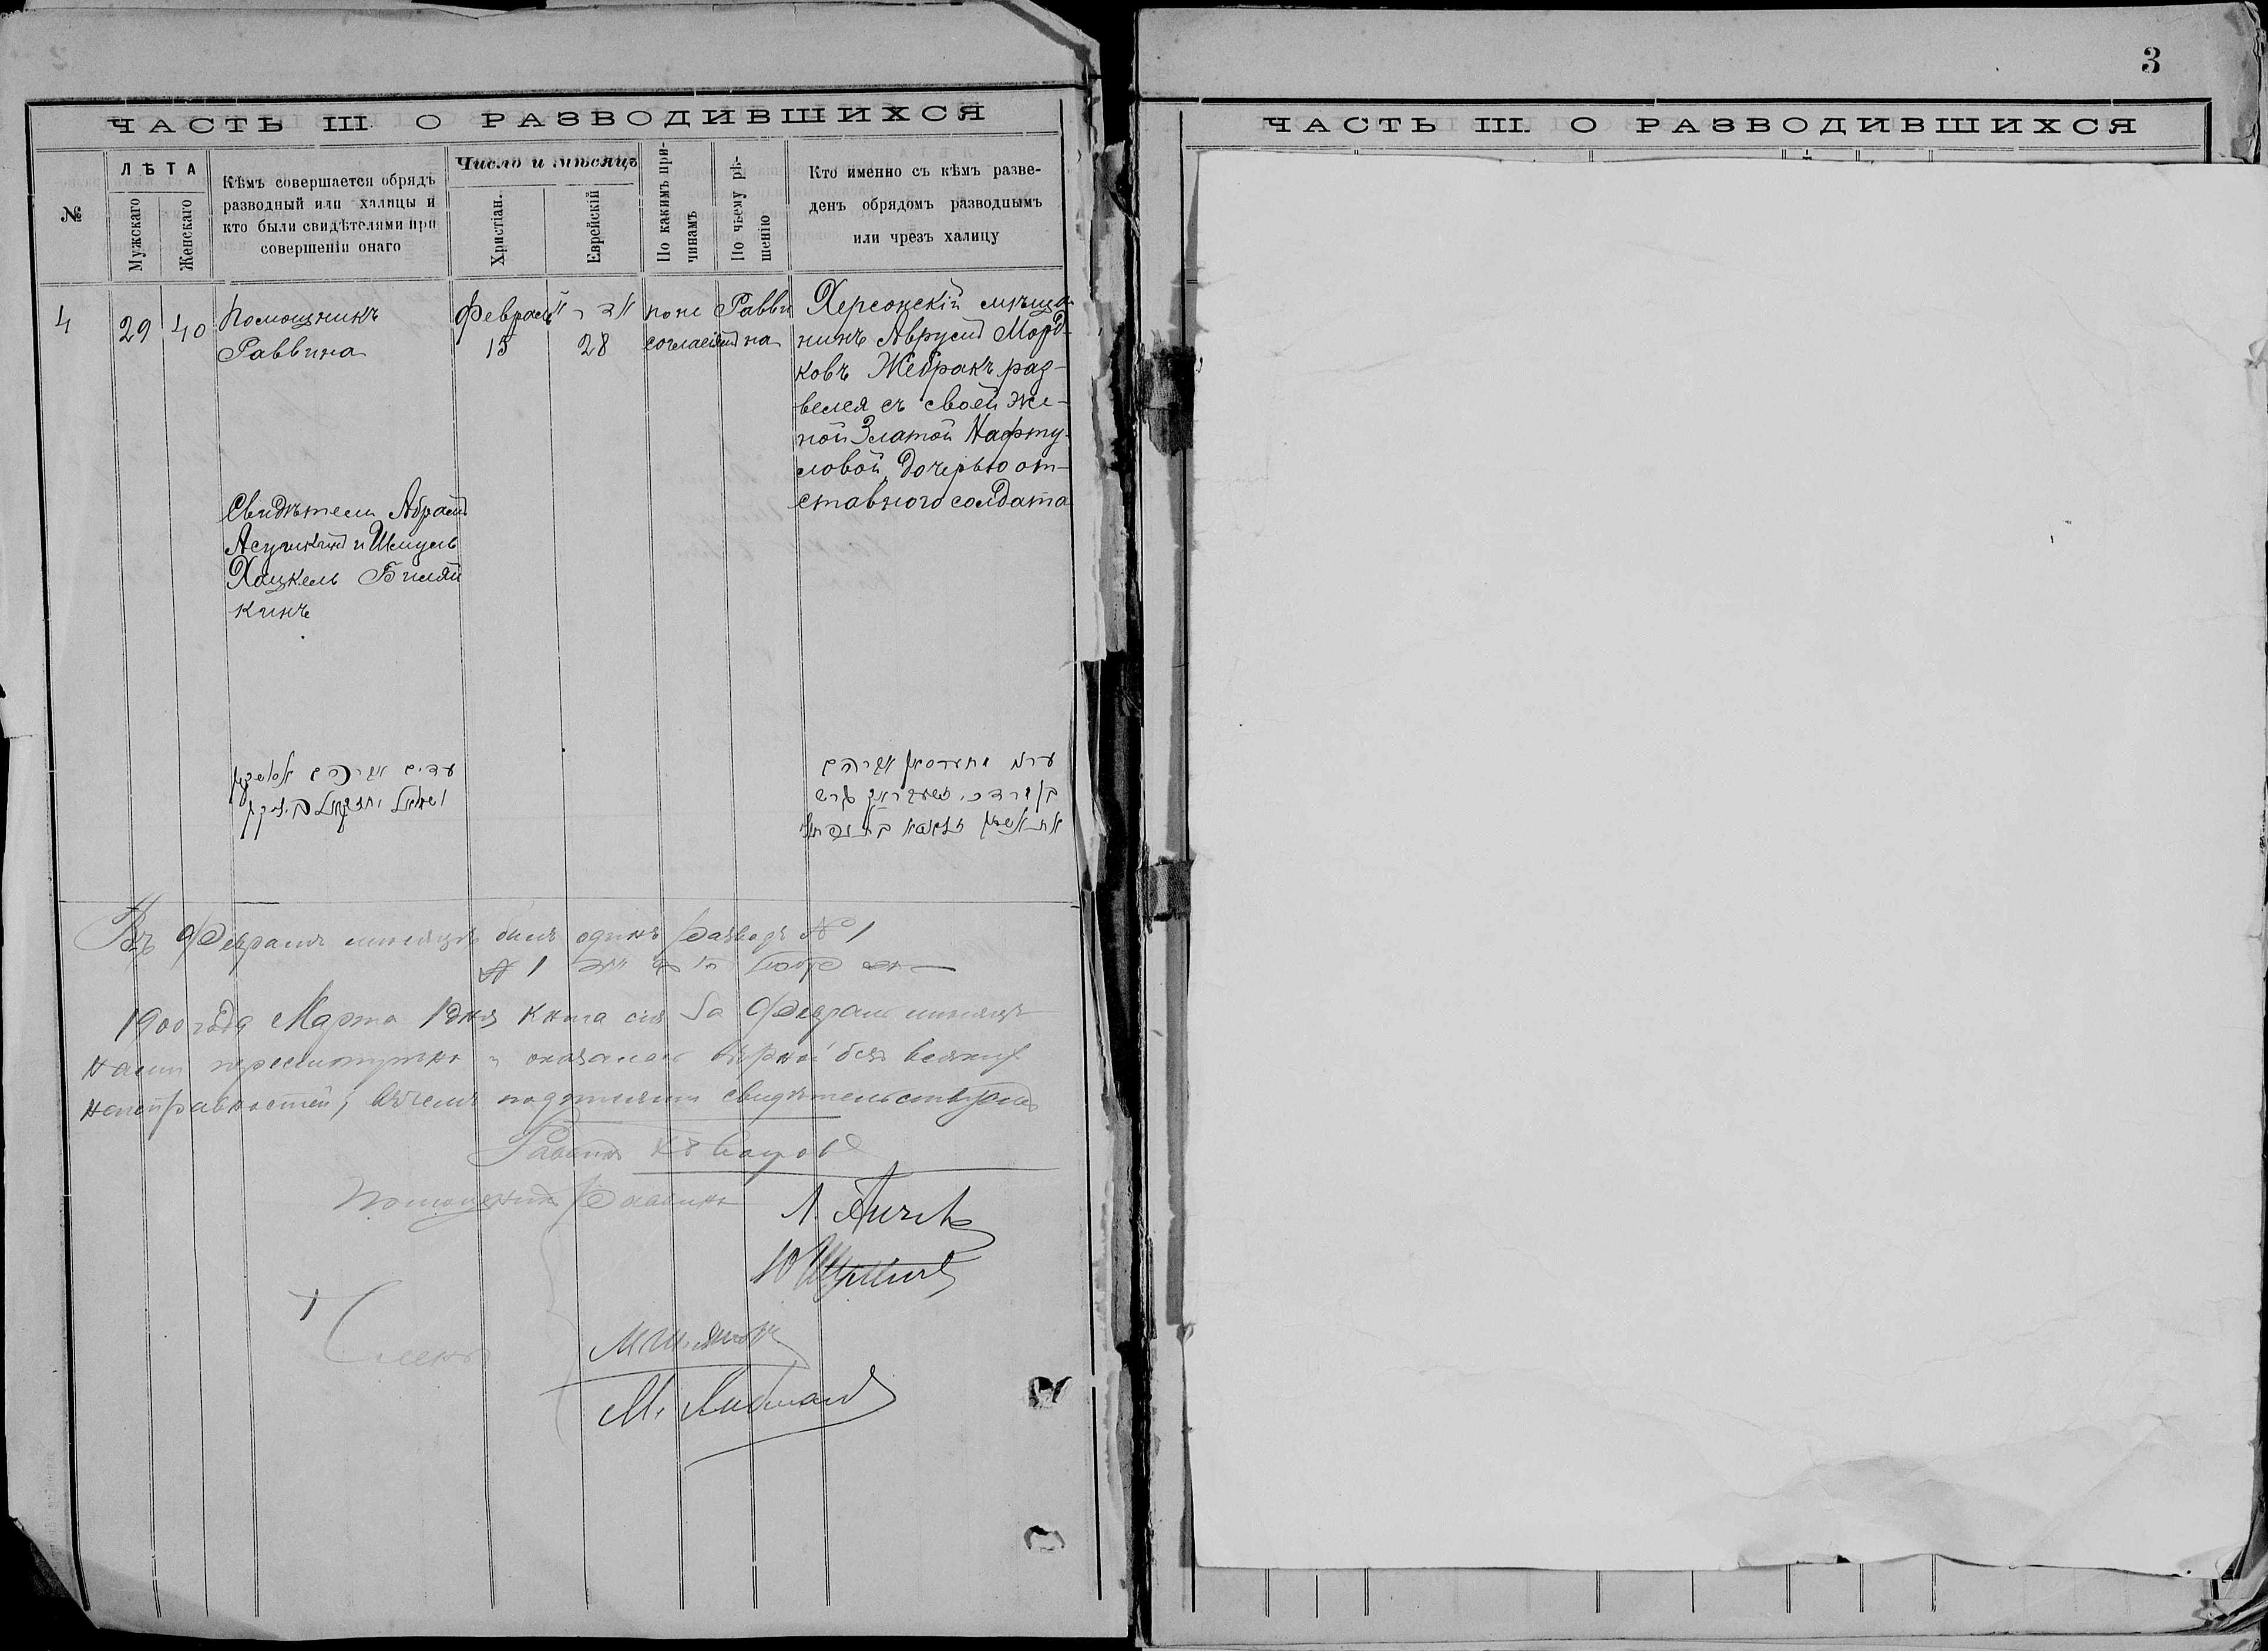 3
ЧАСТЬ III. О РАЗВОДИВШИХСЯ
№
ЛѢТА
Мужскаго
Женскаго
Кѣмъ совершается обрядъ
разводный или халицы и
кто были свидѣтелями при
совершеніи онаго
Число и мѣсяцъ
Христіан.
Еврейскій
По какимъ при-
чинамъ
По чьему рѣ-
шенію
Кто именно съ кѣмъ разве-
денъ обрядомъ разводнымъ
или чрезъ халицу
4
29
40
Помощникъ
Раввина
Свидѣтели Абрамъ
и Шмуль
Хацкель
кинъ
Февраль
15
28
по не
согласію
Равви
на
Херсонскій мѣща-
нинъ Аврумъ Морд-
ковъ Жебракъ раз-
велся съ своей же-
ной Златой Нафту-
ловой, дочерью от-
ставного солдата
עדים אברהם
ושמואל יחזקאל
אברהם
בן מרדכי
Въ Февралѣ мѣсяцѣ былъ одинъ разводъ № 1
№ 1
1900 года Марта 1 дня книга сія за Февраль мѣсяцъ
нами пересмотрѣна и оказалась вѣрной безъ всякихъ
неисправностей, въ чемъ подписями свидѣтельствуемъ
Раввинъ
Помощникъ Раввина
Члены
ЧАСТЬ III. О РАЗВОДИВШИХСЯ